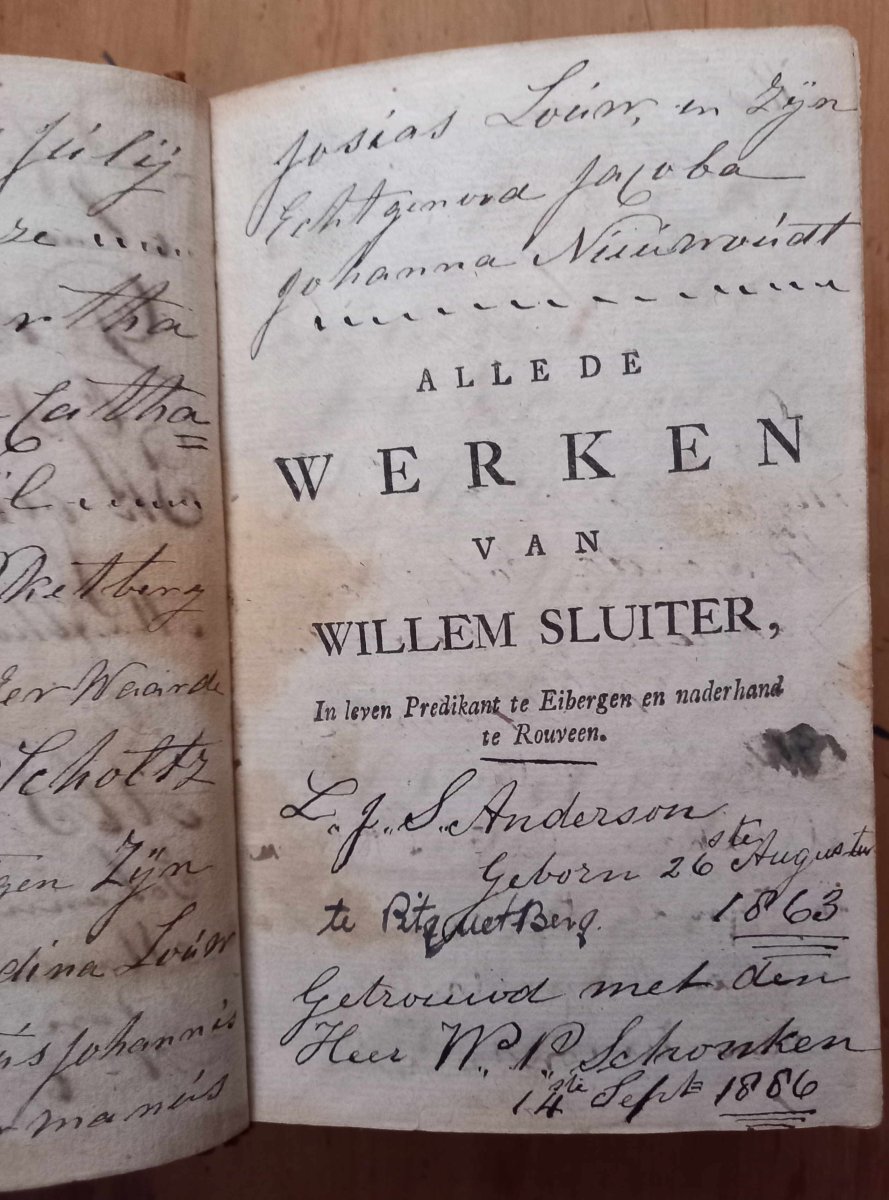 Júlij
ze
rtha
Catha
il
Piketberg
er Waarde
Scholtz
gen Zÿn
dina Loúw
ús Johannis
manús
Josias Loúw, en Zÿn
Echtgenood Jacoba
Johanna Nieúwoúdt
ALLE DE
WERKEN
VAN
WILLEM SLUITER,
In leven Predikant te Eibergen en naderhand
te Rouveen.
L. J. S. Anderson
Geborn 26ste Augustus
te PitquetBerg. 1863
Getrouwd met den
Heer W. P. Schonken
14ste Sept 1886